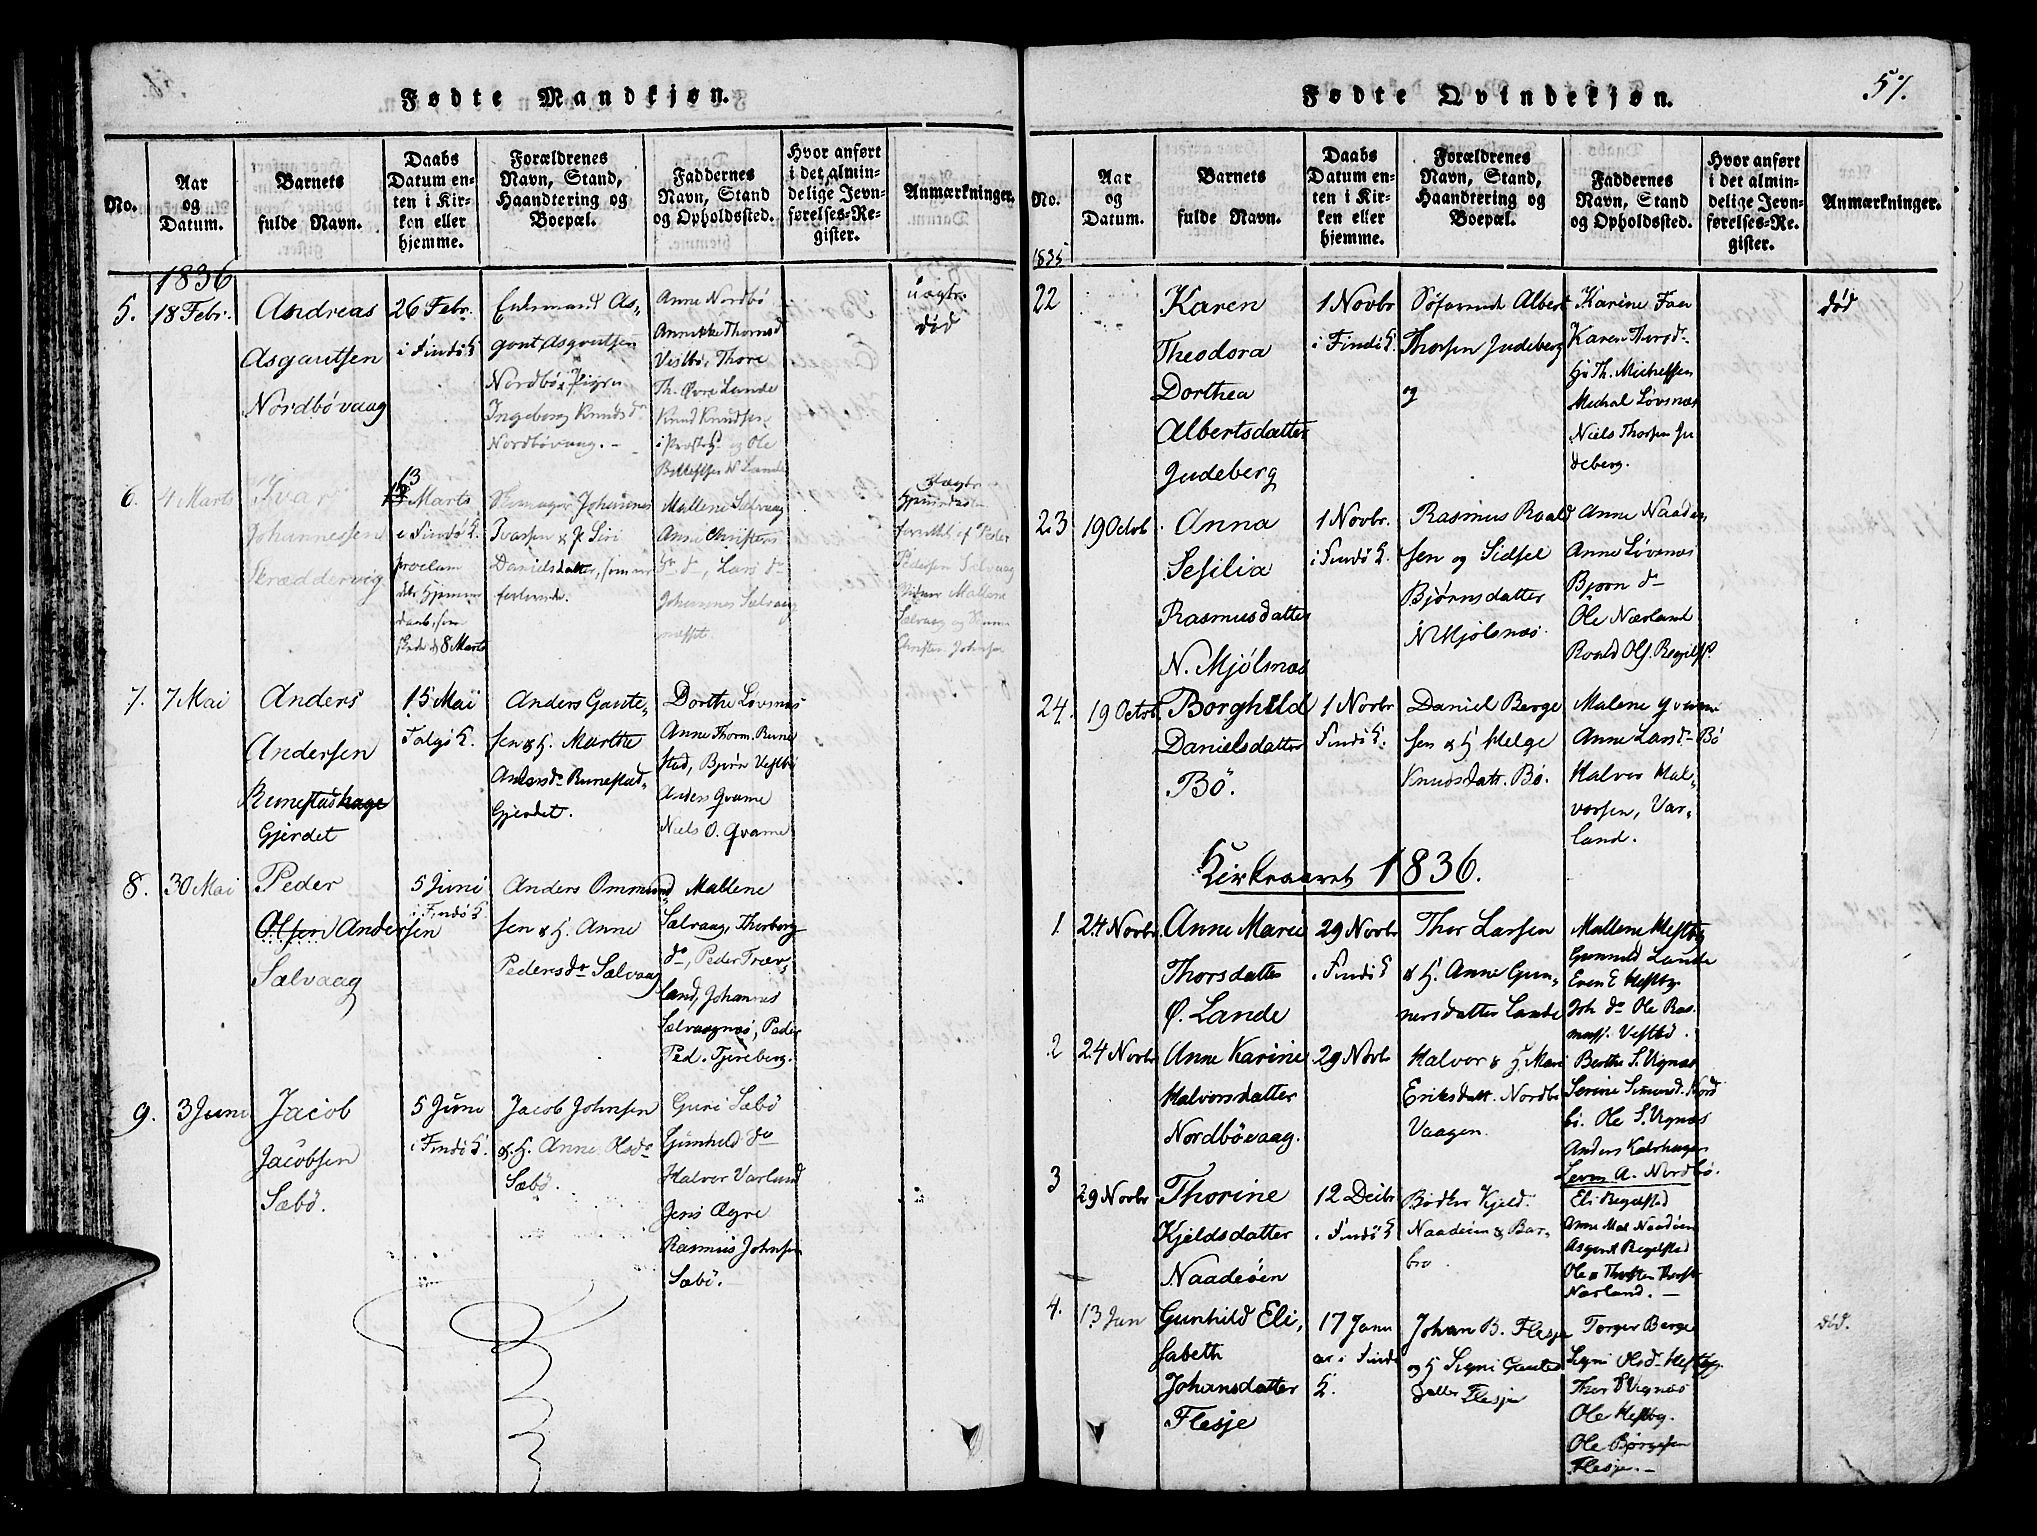 Fødte Mandkjøn.
No.
Aar
og
Datum.
Barnets
fulde Navn.
Daabs
Datum en-
ten i Kir-
ken eller
hjemme.
Forældrenes
Navn, Stand,
Haandtering og
Boepæl.
Faddernes
Navn, Stand
og Opholdssted.
Hvor anført
i det almin-
delige Jevn-
førelses-Re-
gister.
Anmærkninger.
1836
5.
18 Febr.
Andreas
Asgautsen
Nordbövaag
26 Febr.
i Findö K.
Enkemand As-
gaut Asgautsen
Nordbö & Pigen
Ingeborg Knudsdr
Nordbövaag. -
Anne Nordbö
Annikke Thormsd
Vestbö, Thore
Th. Øvre Lande
Knud Knudsen
og Ole
N Lande
uægte
död
6.
4 Marts
Ivar
Johannessen
Skræddervig
13 Marts
i Findö K.
proclam
dets Hjemme
daab, som
skede d 8 Marts
Johannes
Ivarsen & Siri
Danielsdatter,
Mallene Salvaag
Anne Christens
do, Lars do
Johannes Salvaag
næsset.
uægte
Hjemmedøbt
forrettet af Peder
Pedersen Salvaag
Mallene
Salvaag og
Christen Johnsen
7.
7 Mai
Anders
Andersen
Runestadhage
Gjerdet
15 Mai
Talgö K.
Anders Gaute-
sen & H. Marthe
Andersdr Runestad-
Gjerdet.
Dorthe Lövsnæs
Anne Thorm. Rune
stad, Bjørn Vestbö
Anders Qvame
Niels O. Qvame
8.
30 Mai
Peder
Olsen Andersen
Salvaag
5 Juni
i Findö K.
Anders Ommund
sen & H. Anne
Pedersdr Salvaag
Mallene
Salvaag, Thorborg
do, Peder Træv-
land, Johannes
Salvaagnæs, Peder
Ped. Tjereberg.
9.
3 Juni
Jacob
Jacobsen
Sæbø.
5 Juni
i Findö K.
Jacob Johnsen
& H. Anne Olsdr
Sæbø.
Guri Sæbö
Gunhild do
Halvor Varland
Jens Øgre
Rasmus Johnsen
Sæbö.
57.
Fødte Qvindekjøn.
No.
Aar
og
Datum.
Barnets
fulde Navn.
Daabs
Datum en-
ten i Kir-
ken eller
hjemme.
Forældrenes
Navn, Stand,
Haandtering og
Boepæl.
Faddernes
Navn, Stand
og Opholdssted.
Hvor anført
i det almin-
delige Jevn-
førelses-Re-
gister.
Anmærkninger.
1835
22
Karen
Theodora
Dorthea
Albertsdatter
Judeberg
1 Novbr
i Findö K.
Söfarende Albert
Thorsen Judeberg
og
Karine Faa
Karen Thorsdr
Hö Th. Michelsen
Michal Lövsnæs
Niels Thorsen Ju
deberg.
död
23
19 Octob.
Anna
Sesilia
Rasmusdatter
N. Mjölsnæs
1 Novbr.
i Findö K.
Rasmus Roald
sen og Sidsel
Björnsdatter
N Mjölsnæs.
Anne Naaden,
Anne Lövsnæs
Bjørn do
Ole Nærland
Roald Ols.
24.
19 Octob.
Borghild
Danielsdatter
Bö.
1 Novbr
Findö K.
Daniel Berge
sen & H Helge
Knudsdatt. Bö.
Malene Qvame
Anne Larsdr Bö
Halvor Hal-
vorsen, Var-
land.
Kirkeaaret 1836.
1.
24 Novbr.
Anne Marie
Thorsdatter
Ø. Lande
29 Novbr
i Findö K
Thor Larsen
& H. Anne Gun-
nersdatter Lande
Mallene Hestby
Gunnild Lande
Even E Hestby
Joh do Ole Ras.
muss. Vestbö.
2
24 Novbr
Anne Karine
Halvorsdatter
Nordbövaag.
29 Novbr
Halvor & H. Mari
Eriksdatt. Nordbö
Vaagen.
Berthe S. Vignæs
Serine Simonsd. Nord
bö. Ole S. Vignæs
Anders Kalvhagen
Leven A. Nordbö.
3
29 Novbr
Thorine
Kjeldsdatter
Naadeöen
12 Decbr
i Findö K
Bödker Kjeld
Naadeöen & Bar-
bro
Eli Regelstad
Anne Mal. Naadöen
Asgaut Regelstad
Ole & Thorsten Thorst.
Nærland. -
4.
13 Jan
Gunhild Eli-
sabeth
Johansdatter
Flesje
17 Janu
ar i Findö
K.
Johan B. Flesje
og H Signi Gautes
datter Flesje
Torger Berge
Signi Olsdr Hestby.
Thor S Vignæs
Ole Hestby.
Ole Börgesen
Flesje. -
död.